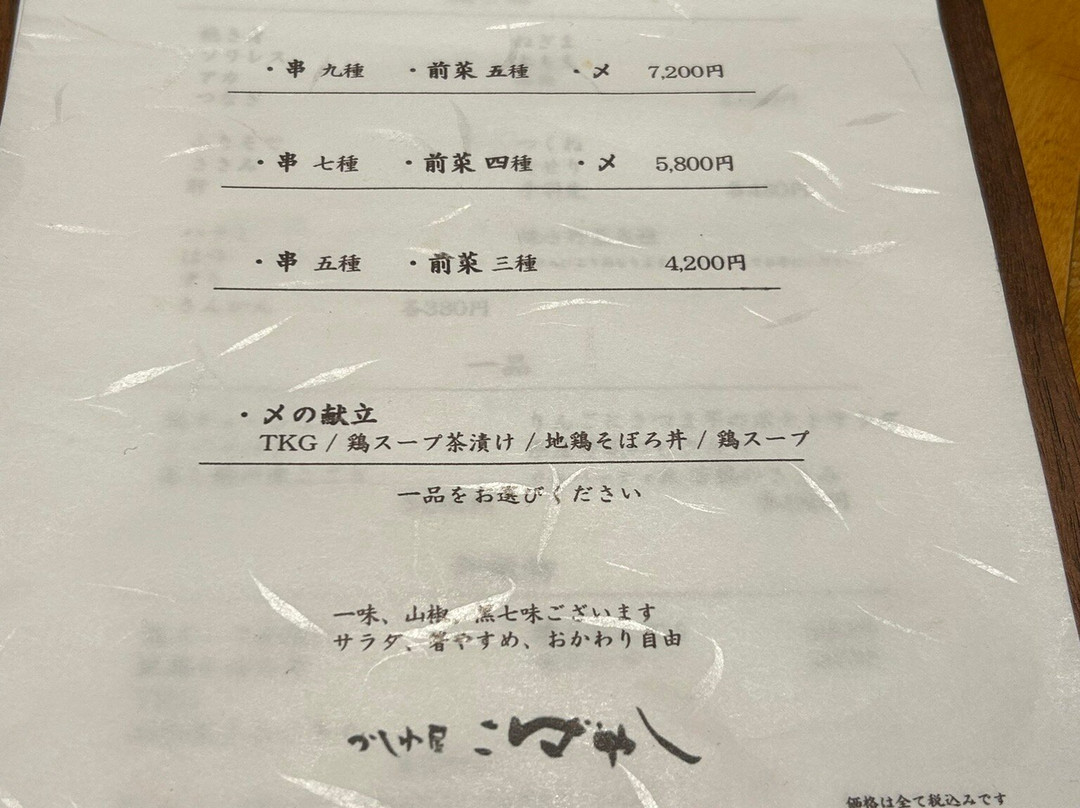 ・串 九種 ・前菜 五種 ・〆 7,200円
・串 七種 ・前菜 四種 ・〆 5,800円
・串 五種 ・前菜 三種 4,200円
・〆の献立
TKG / 鶏スープ茶漬け / 地鶏そぼろ丼 / 鶏スープ
一品をお選びください
一味、山椒、黒七味ございます
サラダ、箸やすめ、おかわり自由
かしわ屋 こばやし
価格は全て税込みです